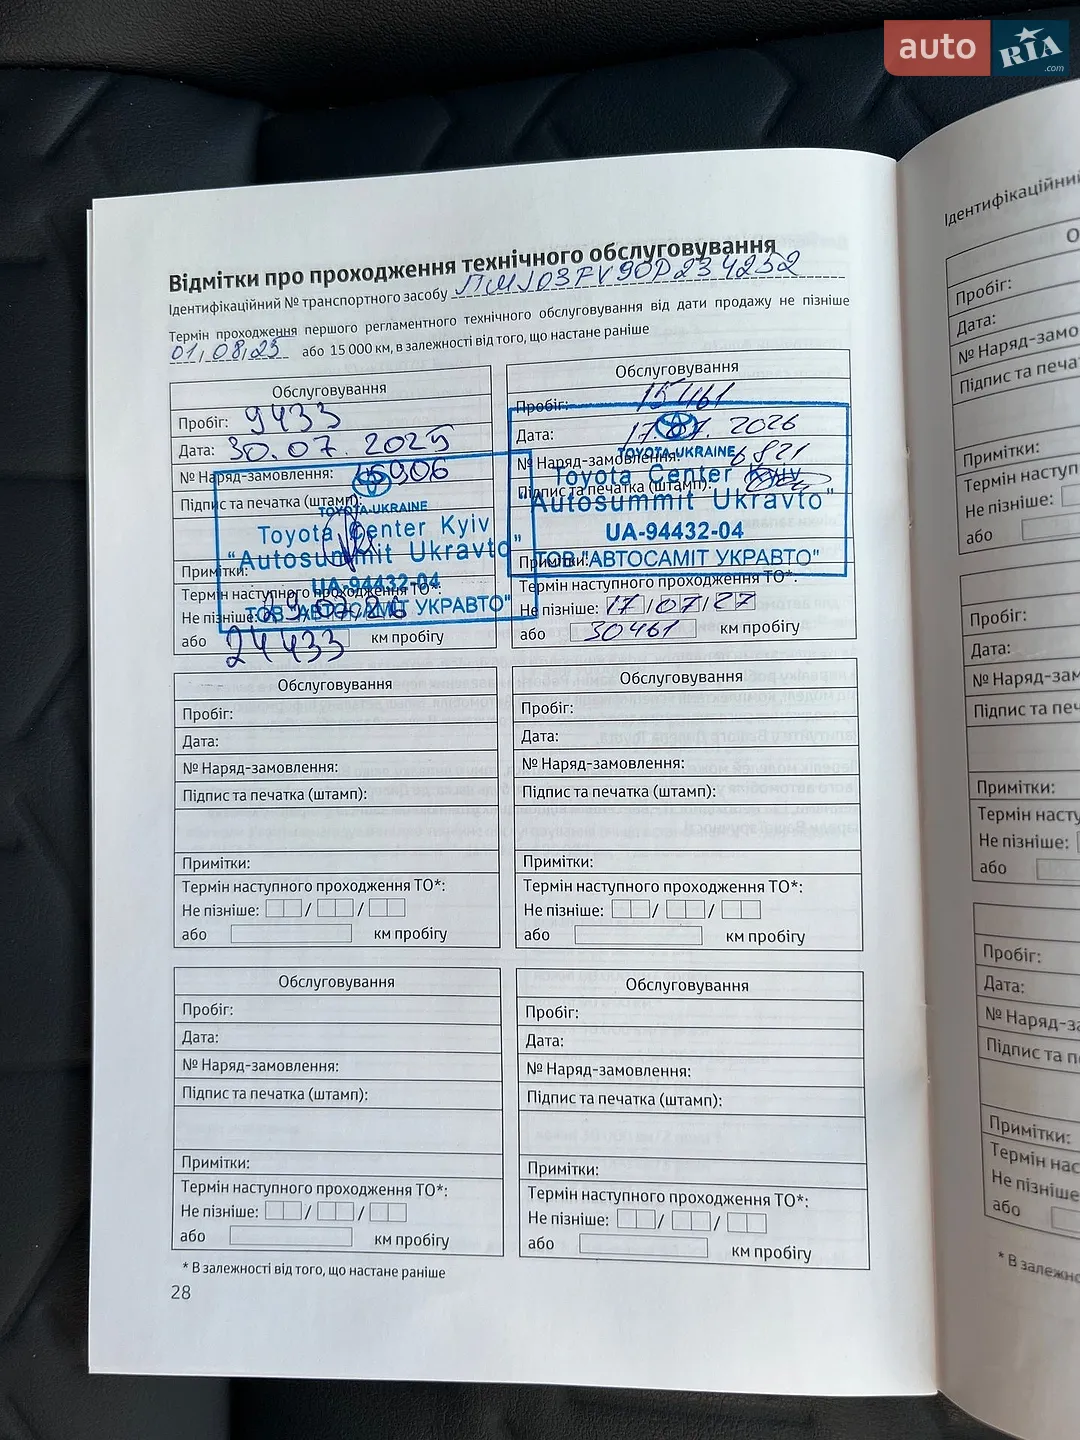 auto RIA.com
Відмітки про проходження технічного обслуговування
Ідентифікаційний № транспортного засобу
Термін проходження першого регламентного технічного обслуговування від дати продажу не пізніше
01,08,23 або 15 000 км, в залежності від того, що настане раніше
Обслуговування
Пробіг: 9433
Дата: 30.07.2025
№ Наряд-замовлення:
Підпис та печатка (штамп):
TOYOTA-UKRAINE
Toyota Center Kyiv
"Autosummit Ukravto"
UA-94432-04
ТОВ "АВТОСАМІТ УКРАВТО"
Примітки:
Термін наступного проходження ТО*:
Не пізніше:
або 24433 км пробігу
Обслуговування
Пробіг: 15461
Дата: 17.07.2026
№ Наряд-замовлення:
Підпис та печатка (штамп):
TOYOTA-UKRAINE
Toyota Center Kyiv
"Autosummit Ukravto"
UA-94432-04
ТОВ "АВТОСАМІТ УКРАВТО"
Примітки:
Термін наступного проходження ТО*:
Не пізніше: 17/07/27
або 30461 км пробігу
Обслуговування
Пробіг:
Дата:
№ Наряд-замовлення:
Підпис та печатка (штамп):
Примітки:
Термін наступного проходження ТО*:
Не пізніше: / /
або км пробігу
Обслуговування
Пробіг:
Дата:
№ Наряд-замовлення:
Підпис та печатка (штамп):
Примітки:
Термін наступного проходження ТО*:
Не пізніше: / /
або км пробігу
Обслуговування
Пробіг:
Дата:
№ Наряд-замовлення:
Підпис та печатка (штамп):
Примітки:
Термін наступного проходження ТО*:
Не пізніше: / /
або км пробігу
Обслуговування
Пробіг:
Дата:
№ Наряд-замовлення:
Підпис та печатка (штамп):
Примітки:
Термін наступного проходження ТО*:
Не пізніше: / /
або км пробігу
* В залежності від того, що настане раніше
28
Ідентифікаційний
Пробіг:
Дата:
№ Наряд-замо
Підпис та печа
Примітки:
Термін наступ
Не пізніше:
або
Пробіг:
Дата:
№ Наряд-зам
Підпис та печ
Примітки:
Термін насту
Не пізніше:
або
Пробіг:
Дата:
№ Наряд-за
Підпис та п
Примітки:
Термін нас
Не пізніше
або
* В залежно